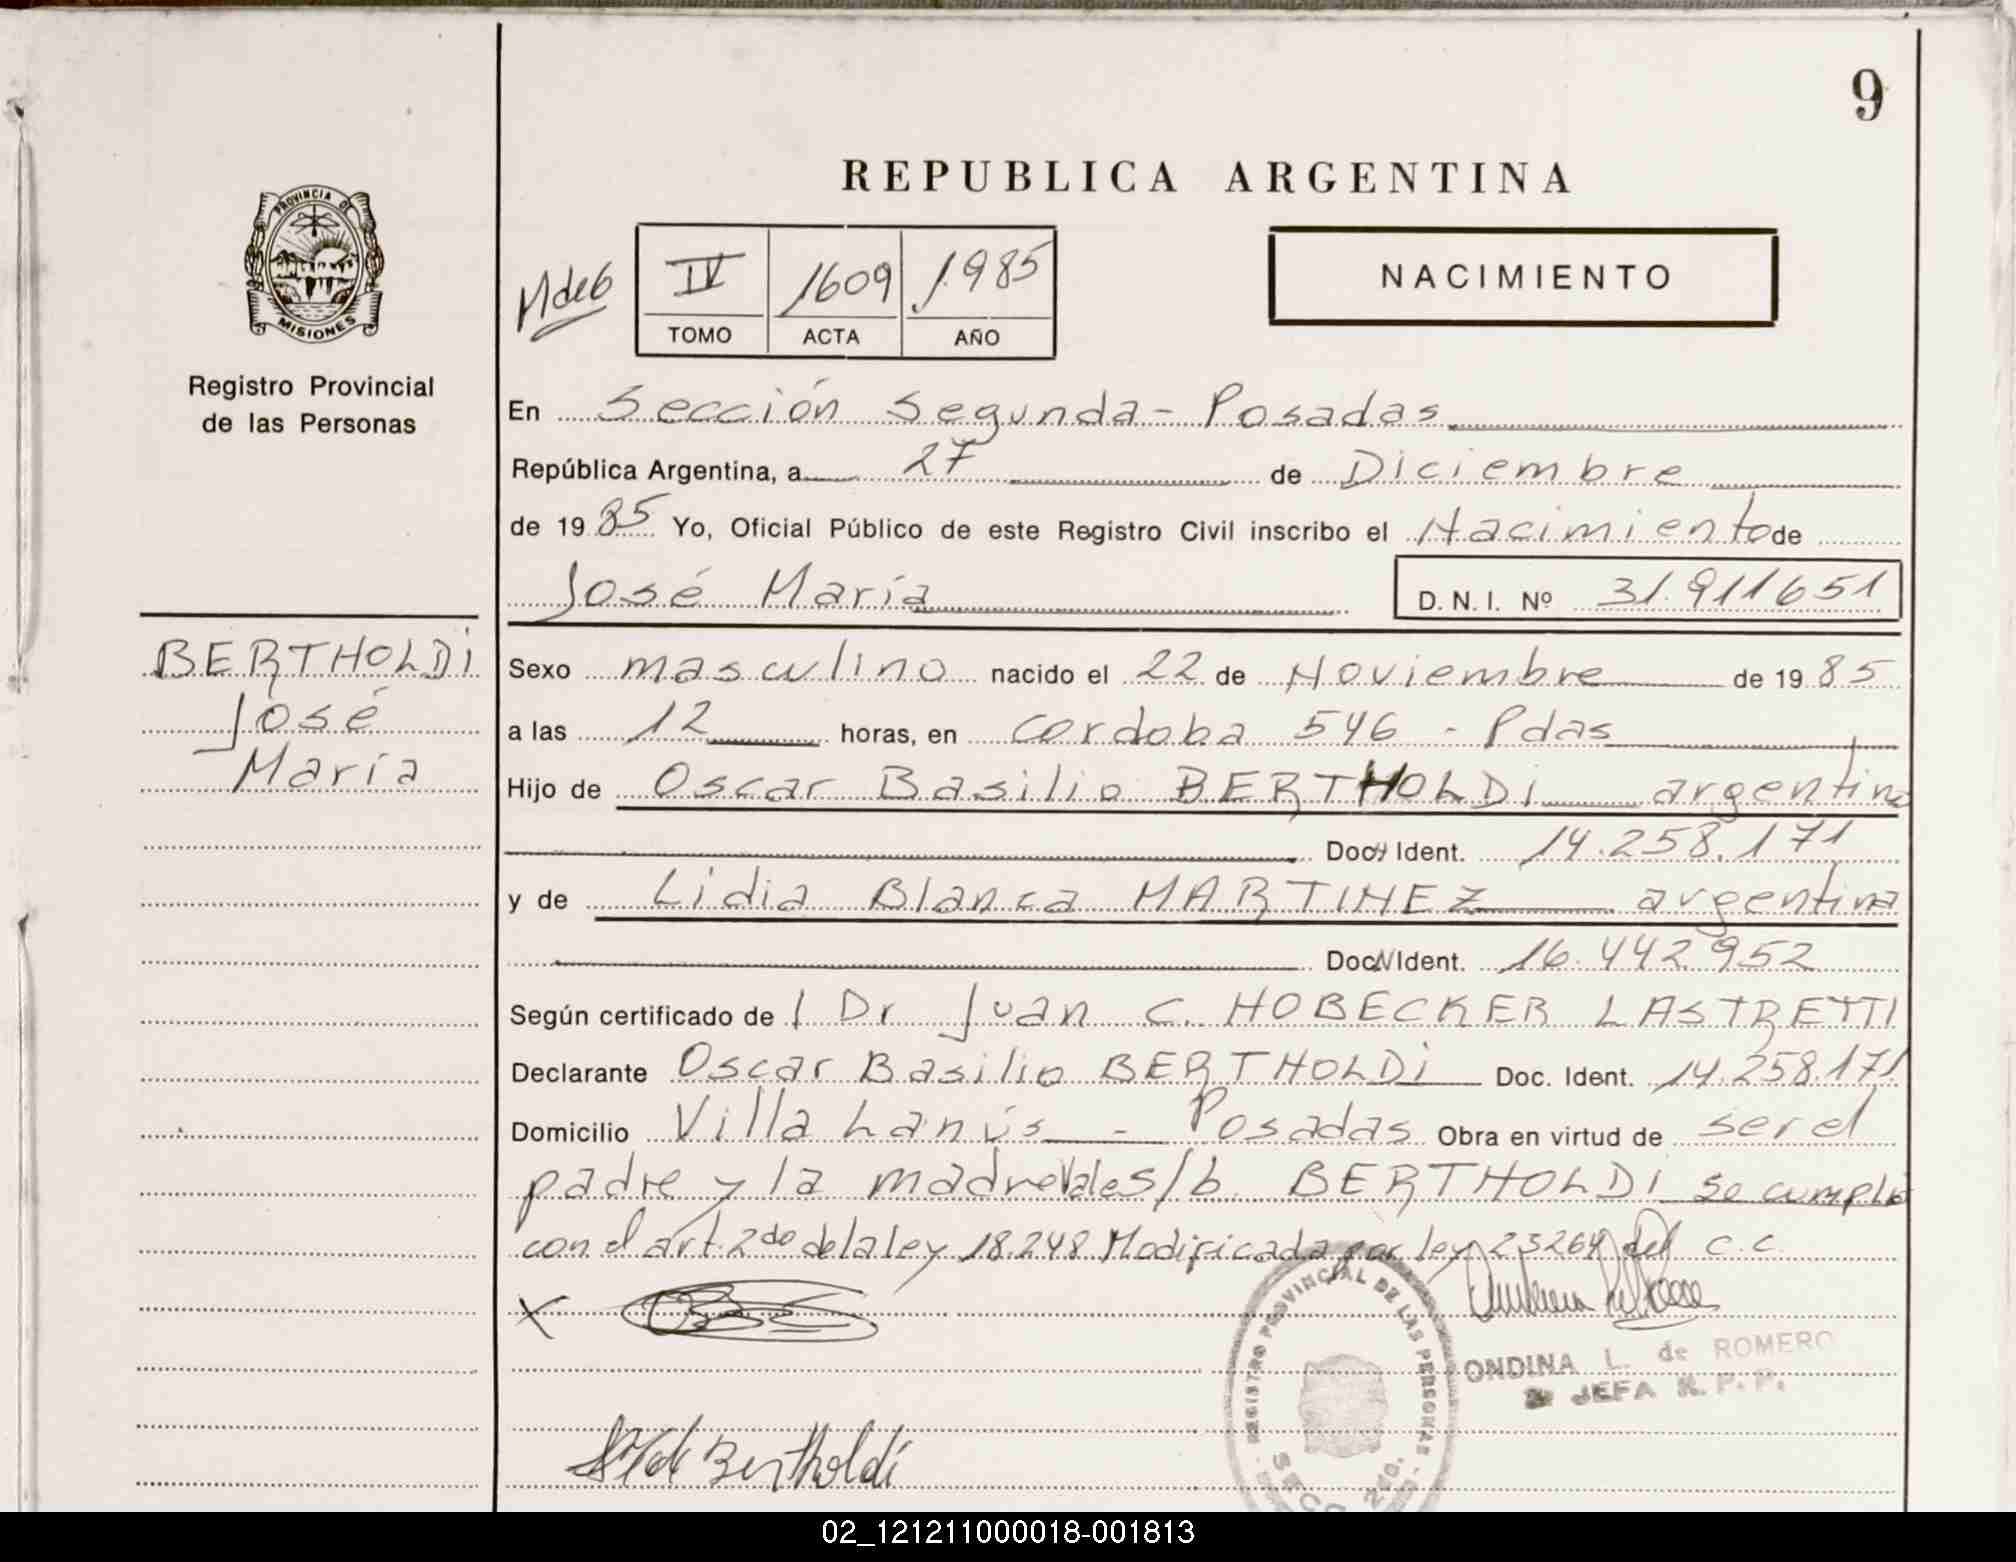 9
REPUBLICA ARGENTINA
PROVINCIA DE
MISIONES
Registro Provincial
de las Personas
IV 1609 1.985
TOMO ACTA AÑO
NACIMIENTO
En Sección Segunda - Posadas
República Argentina, a 27 de Diciembre
de 1985 Yo, Oficial Público de este Registro Civil inscribo el Nacimiento de
José María D.N.I. Nº 31.911651
BERTHOLDI
José
María
Sexo masculino nacido el 22 de Noviembre de 1985
a las 12 horas, en cordoba 546 - Pdas
Hijo de Oscar Basilio BERTHOLDI argentino
Doc. Ident. 14.258.171
y de Lidia Blanca MARTINEZ argentina
Doc. Ident. 16.442.952
Según certificado de l Dr Juan C. NOBECKER LASTRETTI
Declarante Oscar Basilio BERTHOLDI Doc. Ident. 14.258.171
Domicilio Villa Lanús - Posadas Obra en virtud de ser el
padre y la madre Vales/b. BERTHOLDI se cumplió
con el art. 2do de la ley 18.248 Modificada por ley 23264 del C.C.
X
REGISTRO PROVINCIAL DE LAS PERSONAS
SECC. 2da.
ONDINA L. de ROMERO
JEFA R.P.P.
de Bertholdi
02_121211000018-001813